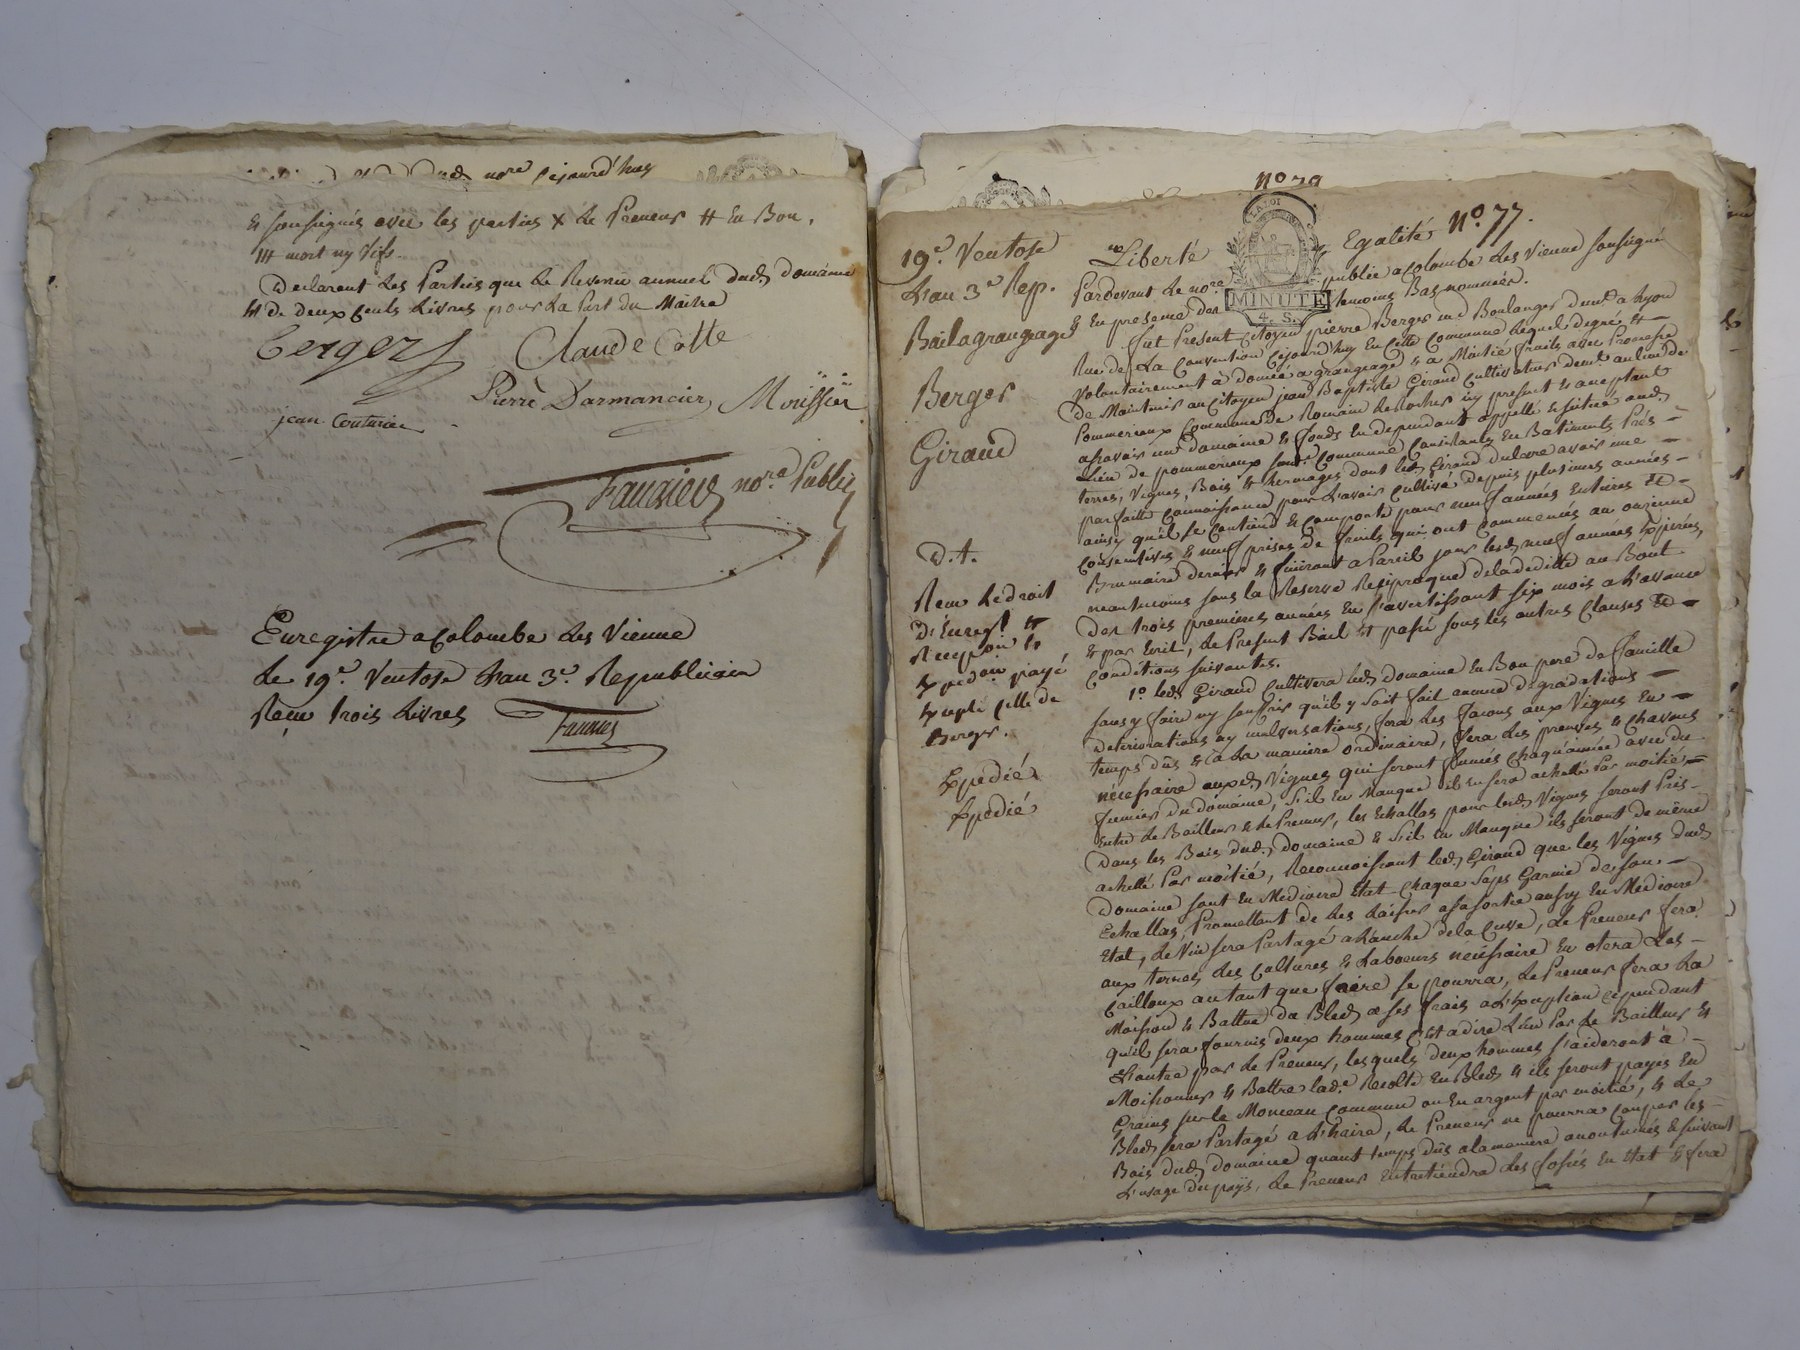 nore cejourd'huy
& soussignés avec les parties X Le Preneur # En Bon.
## mort ny Vifs.
Declarent Les Parties que Le Revenu annuel dud. Domaine
est de deux Cents Livres pour La Part du Maitre
Berger Claude Colle
Pierre Darmancier Moussier
jean Couturier
Faugier nore. Public
Enregistre a Colombe Les Vienne
Le 19e. Ventose Lan 3e. Republicain
Reçu trois Livres Faugier
No 79
LA LOI
MINUTE
4. S.
No. 77.
19e. Ventose
L'an 3e Rep.
Bail a grangeage
Berger
Giraud
D. t.
Reçu Le droit
D'Enregt. et
Reception Le
Expedon payé
Excepté Celle de
Berger.
Expedié
Expedié
Liberté Egalité
Pardevant Le nore public a Colombe Les Vienne soussigné
& En presence des temoins Bas nommés.
fut Present Citoyen pierre Berger md Boulanger demt. a Lyon
Rue de La Convention Cejourd'huy En Cette Commune Lequel degré et
Volontairement à donné a grangeage & a Moitié fruits avec Promesse
De Maintenir au Citoyen jean Baptiste Giraud Cultivateur demt. au lieu de
Pommerieux Commune De Romain Les Roches icy present & aceptant
a sçavoir un Domaine & fonds En dependant appellé & situé aud.
Lieu de pommerieux susd. Commune, Consistants En Batiments Prés
terres, Vignes, Bois & hermages dont led. Giraud declare avoir une
parfaite Connoissance pour L'avoir Cultivé depuis plusieurs années
ainsy qu'il se Contient & Comporte pour neuf années Entieres &
Consecutives & neuf prises de fruits qui ont Commencés au onzieme
Brumaire dernier & finiront a Pareil jour lesd. neuf années Expirées,
neantmoins sous la Reserve Reciproque de la deditte au Bout
des trois premieres années En s'avertissant six mois a L'avance
& par Ecrit, Le Present Bail Est passé sous les autres Clauses &
Conditions suivantes.
1o. led. Giraud Cultivera led. domaine En Bon pere de famille
sans y faire ny souffrir qu'il y soit fait aucune degradations
deteriorations ny malversations, fera Les facons aux Vignes En
temps dûs & a La maniere ordinaire, fera des preuves & Chavons
necessaire auxd. Vignes qui seront fumés Chaqu'année avec du
fumier du domaine, s'il En Manque il En sera achetté Par moitié
Entre Le Bailleur & Le Preneur, les Echallas pour lesd. Vignes seront Pris
Dans les Bois dud. domaine & s'il En Manque ils seront de même
achetté Par moitié, Reconnoissant led. Giraud que les Vignes dud.
Domaine sont En Mediocre Etat Chaque Seps Garnie de son
Echallas, Promettant de Les Laisser a sa sortie aussy En Mediocre
Etat, Le Vin sera Partagé a L'anche de la Cuve, Le Preneur fera
aux terres des Coltures & Labeurs necessaire En otera Les
Cailloux autant que faire se pourra, Le Preneur fera La
Moisson & Battue du Bled a ses frais a L'Exception Cependant
qu'il sera fournis deux hommes C'est a dire L'un Par Le Bailleur Et
L'autre par Le Preneur, lesquels deux hommes s'aideront à
Moissonner & Battre lad. Recolte En Bled & ils seront payés En
Grains sur le Monceau Commun ou En argent par moitié, & Le
Bled sera Partagé a L'haire, Le Preneur ne pourra Couper les
Bois dud. domaine quaux temps dûs a la maniere accoutumés & suivant
L'usage du pays, Le Preneur Entretiendra Les fossés En Etat & fera